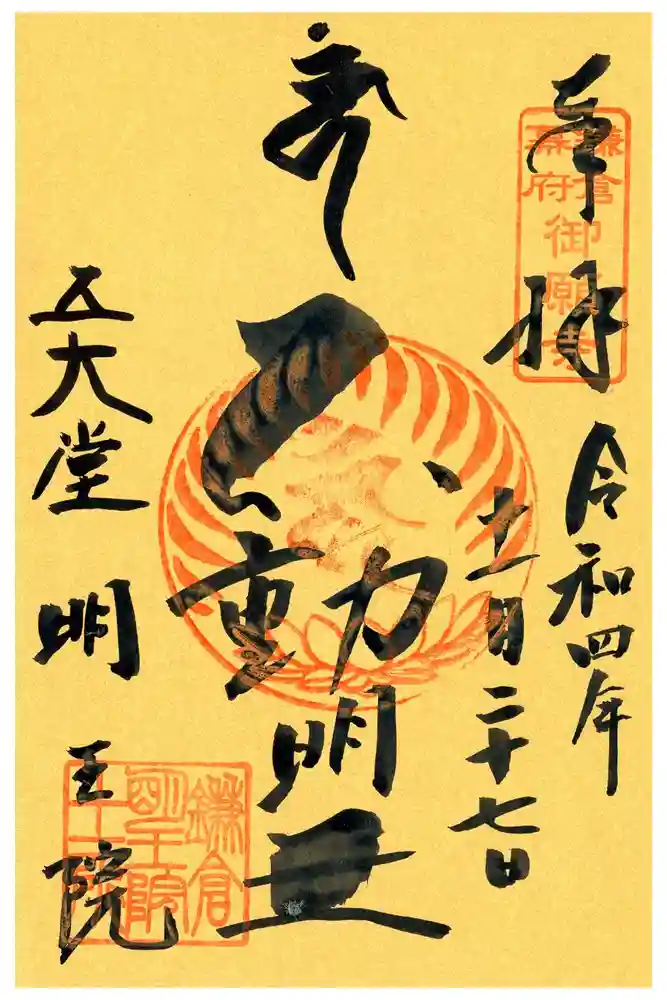 奉拝
鎌倉
幕府
御願寺
令和四年
十一月二十七日
不動明王
五大堂 明王院
鎌倉
明王院